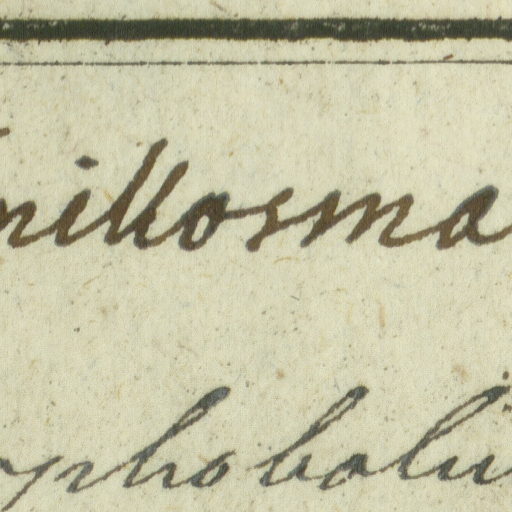 nillosma
ophobalu